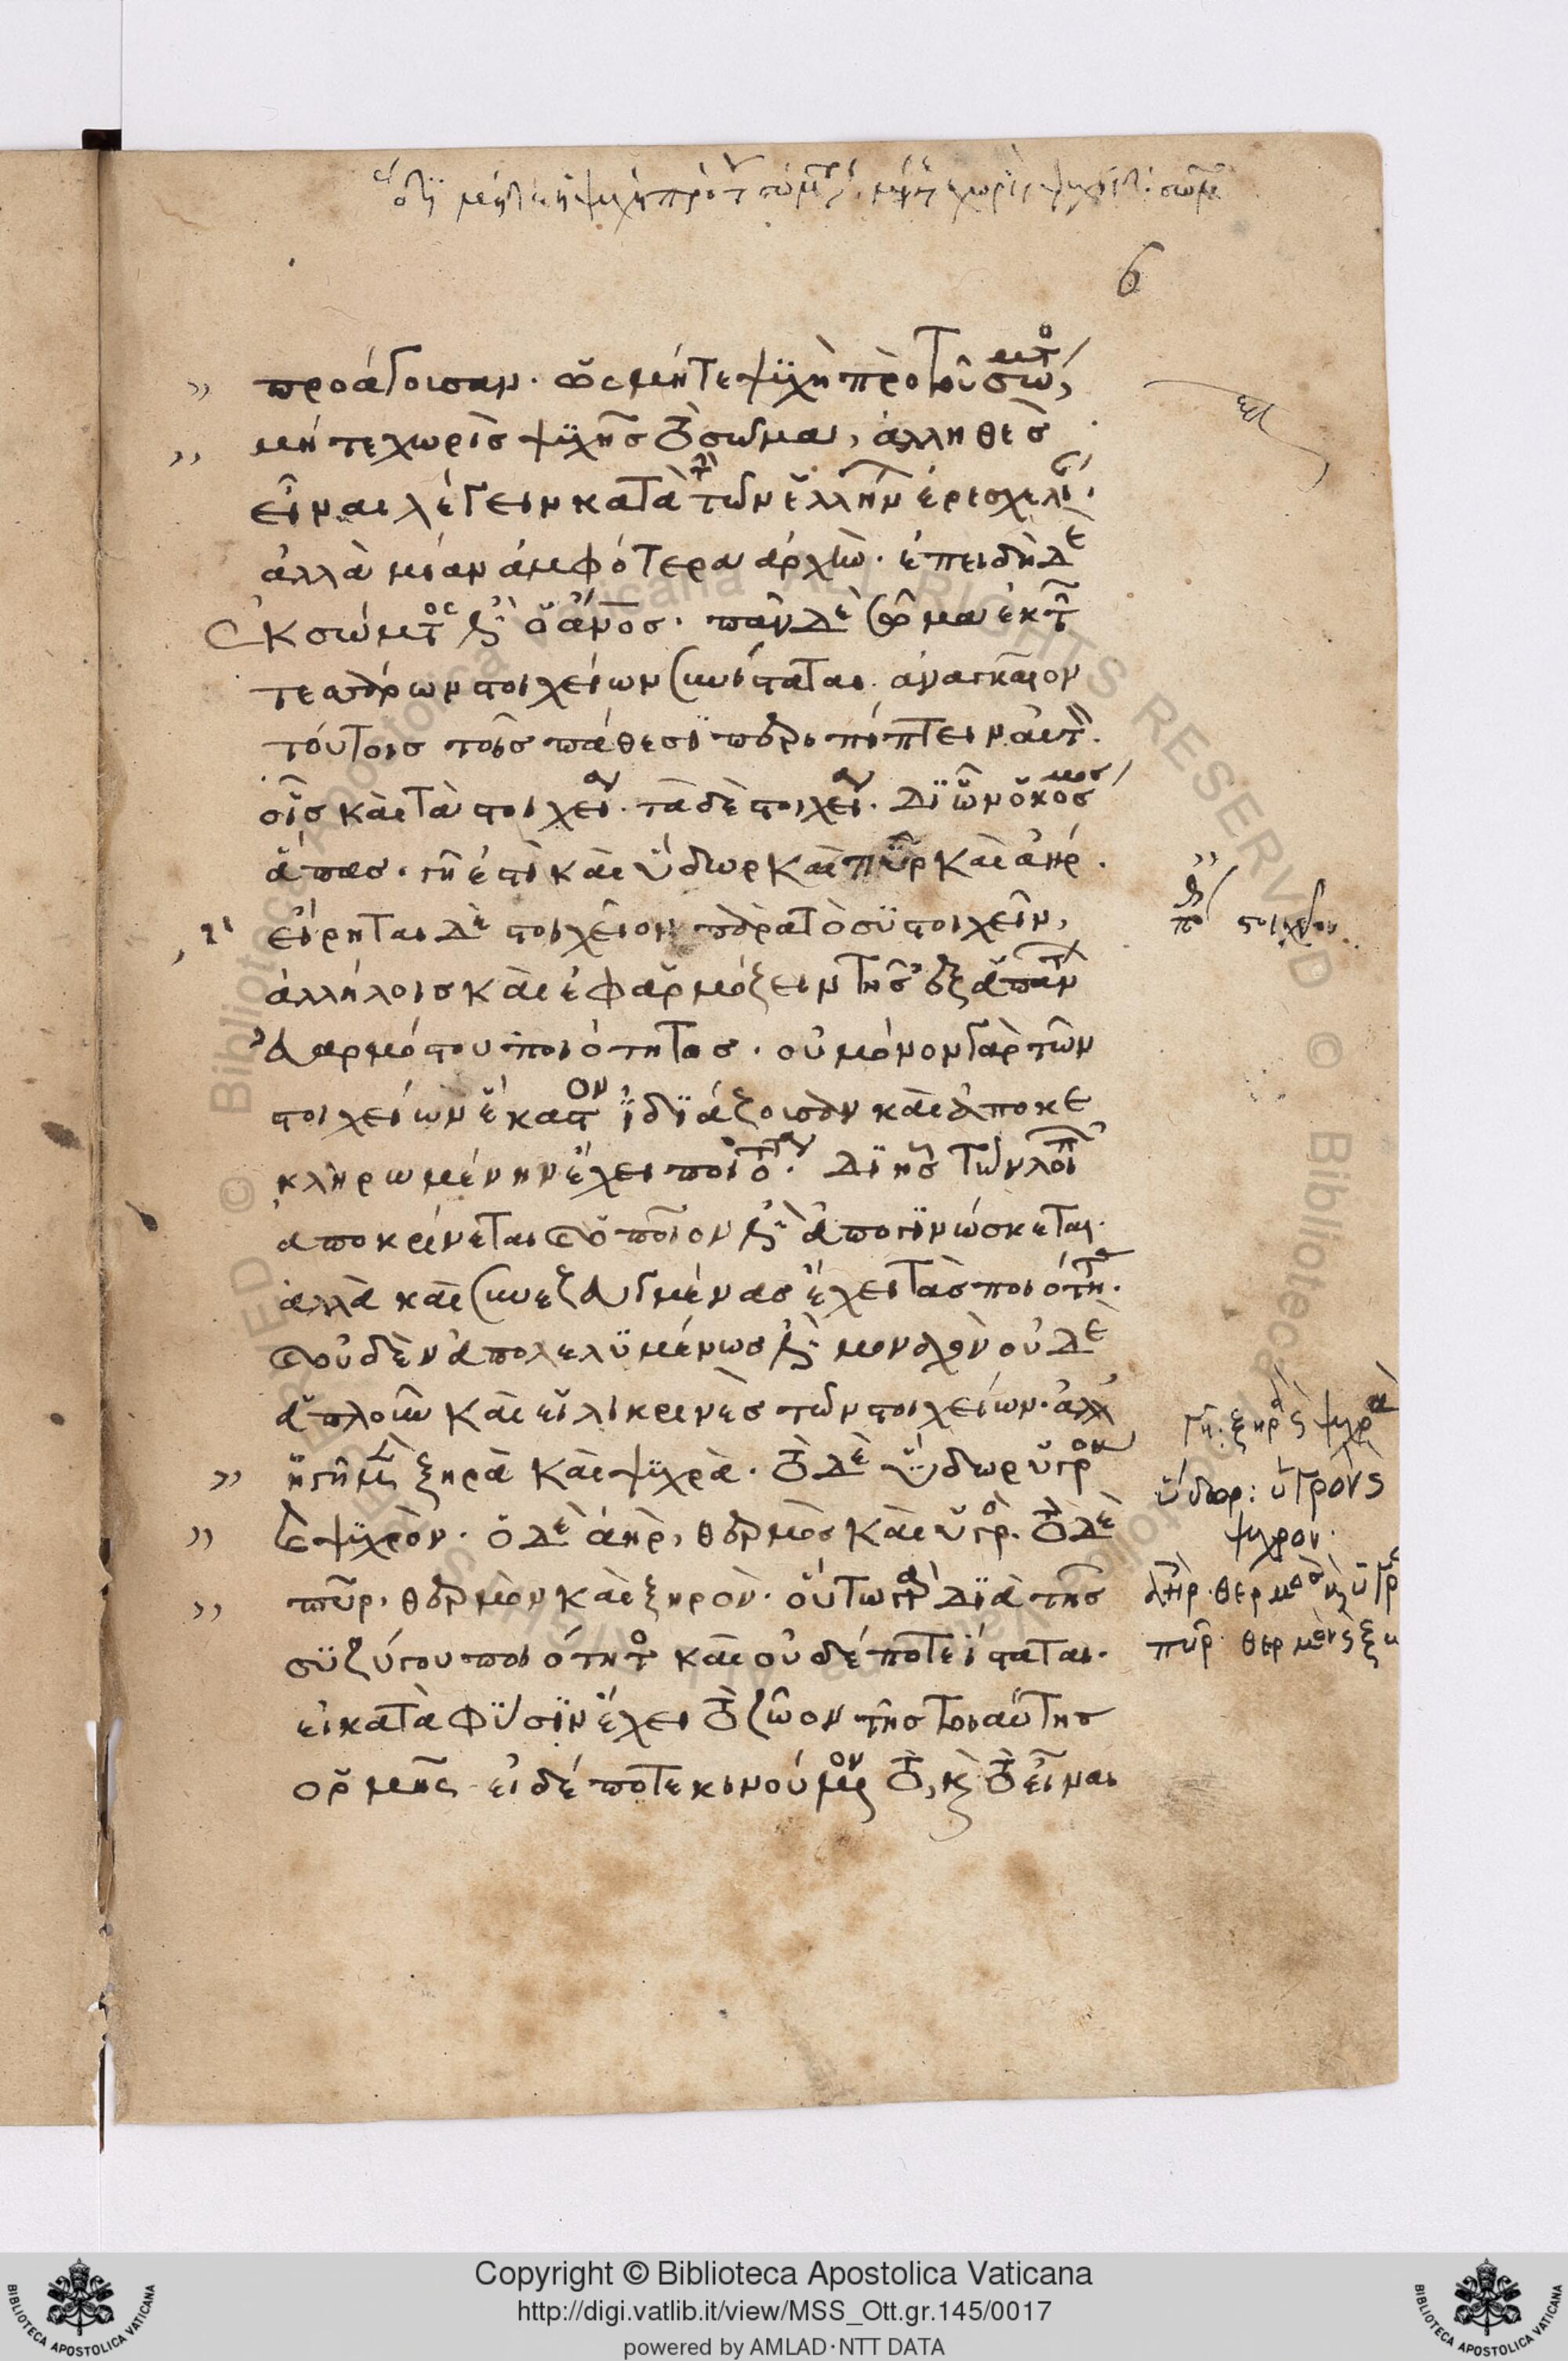 6
προάγουσαν. ὡς μήτε ψυχὴ πρὸ τοῦ σώματος,
μήτε χωρὶς ψυχῆς τὸ σῶμα, ἀλληθὲς
εἶναι λέγειν κατὰ τὴν τῶν ἑλλήνων ἐρεσχελίαν.
ἀλλὰ μίαν ἀμφότερα ἀρχήν. ἐπειδὴ δὲ
ἐκ σώματος ἐστὶ ὁ ἄνος. πᾶν δὲ σῶμα ἐκ τῶν
τεσσάρων στοιχείων συνίσταται. ἀναγκαῖον
τούτοις τοῖς πάθεσι περιπίπτειν αὐτὸν.
οἷς καὶ τὰ στοιχεῖα. τὰ δὲ στοιχεῖα. δι ὧν ὁ κόσμος
ἅπας. γῆ ἐστὶ καὶ ὕδωρ καὶ πῦρ καὶ ἀήρ.
εἴρηται δὲ στοιχεῖον παρὰ τὸ συστοιχεῖν,
ἀλλήλοις καὶ ἐφαρμόζειν τῆς ἐξ ἁπάντων
εὐαρμόστου ποιότητος. οὐ μόνον γὰρ τῶν
στοιχείων ἕκαστον ἰδιάζουσαν καὶ ἀποκε
κληρωμένην ἔχει ποιότητα. δι ἧς τῶν λοιπῶν
ἀποκρίνεται τὸ ποῖον ἐστὶ ἀπογινώσκεται.
ἀλλὰ καὶ συνεζευγμένας ἔχει τὰς ποιότητας.
τὸ οὐδὲν ἀπολελυμένως ἐστὶ μοναχὸν οὐδὲ
ἁπλοῦν καὶ εἰλικρινὲς τῶν στοιχείων. ἀλλ
ἡ γῆ μὲν ξηρὰ καὶ ψυχρὰ. τὸ δὲ ὕδωρ ὑγρὸν
καὶ ψυχρὸν. ὁ δὲ ἀὴρ, θερμὸς καὶ ὑγρὸς. τὸ δὲ
πῦρ, θερμὸν καὶ ξηρὸν. οὕτω γὰρ διὰ τῆς
συζύγου ποιότητος καὶ οὐδέποτε ἵσταται.
εἰ κατὰ φύσιν ἔχει τὸ ζῶον τῆς τοιαύτης
ὁρμῆς. εἰ δέ ποτε κινούμενον τὸ, καὶ τὸ εἶναι
στοιχεῖον
γῆ: ξηρὰ καὶ ψυχρὰ
ὕδωρ: ὑγρὸν καὶ
ψυχρον.
ἀὴρ. θερμὸς καὶ ὑγρ
πῦρ. θερμὸν καὶ ξη
Copyright © Biblioteca Apostolica Vaticana
http://digi.vatlib.it/view/MSS_Ott.gr.145/0017
powered by AMLAD·NTT DATA